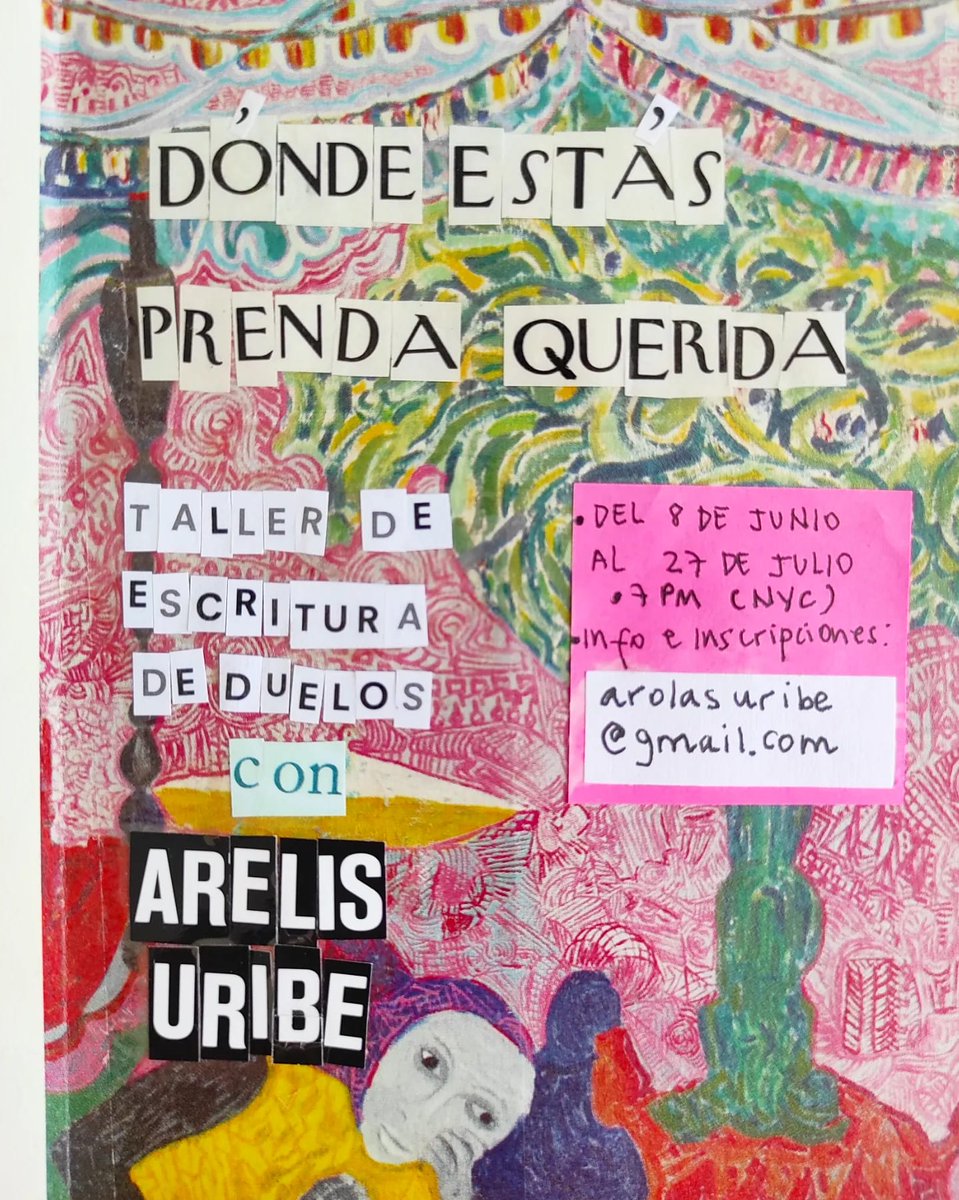 DÓNDE ESTÁS
PRENDA QUERIDA
TALLER DE
ESCRITURA
DE DUELOS
con
ARELIS
URIBE
• DEL 8 DE JUNIO
AL 27 DE JULIO
• 7 PM (NYC)
• Info e Inscripciones:
arolasuribe
@gmail.com